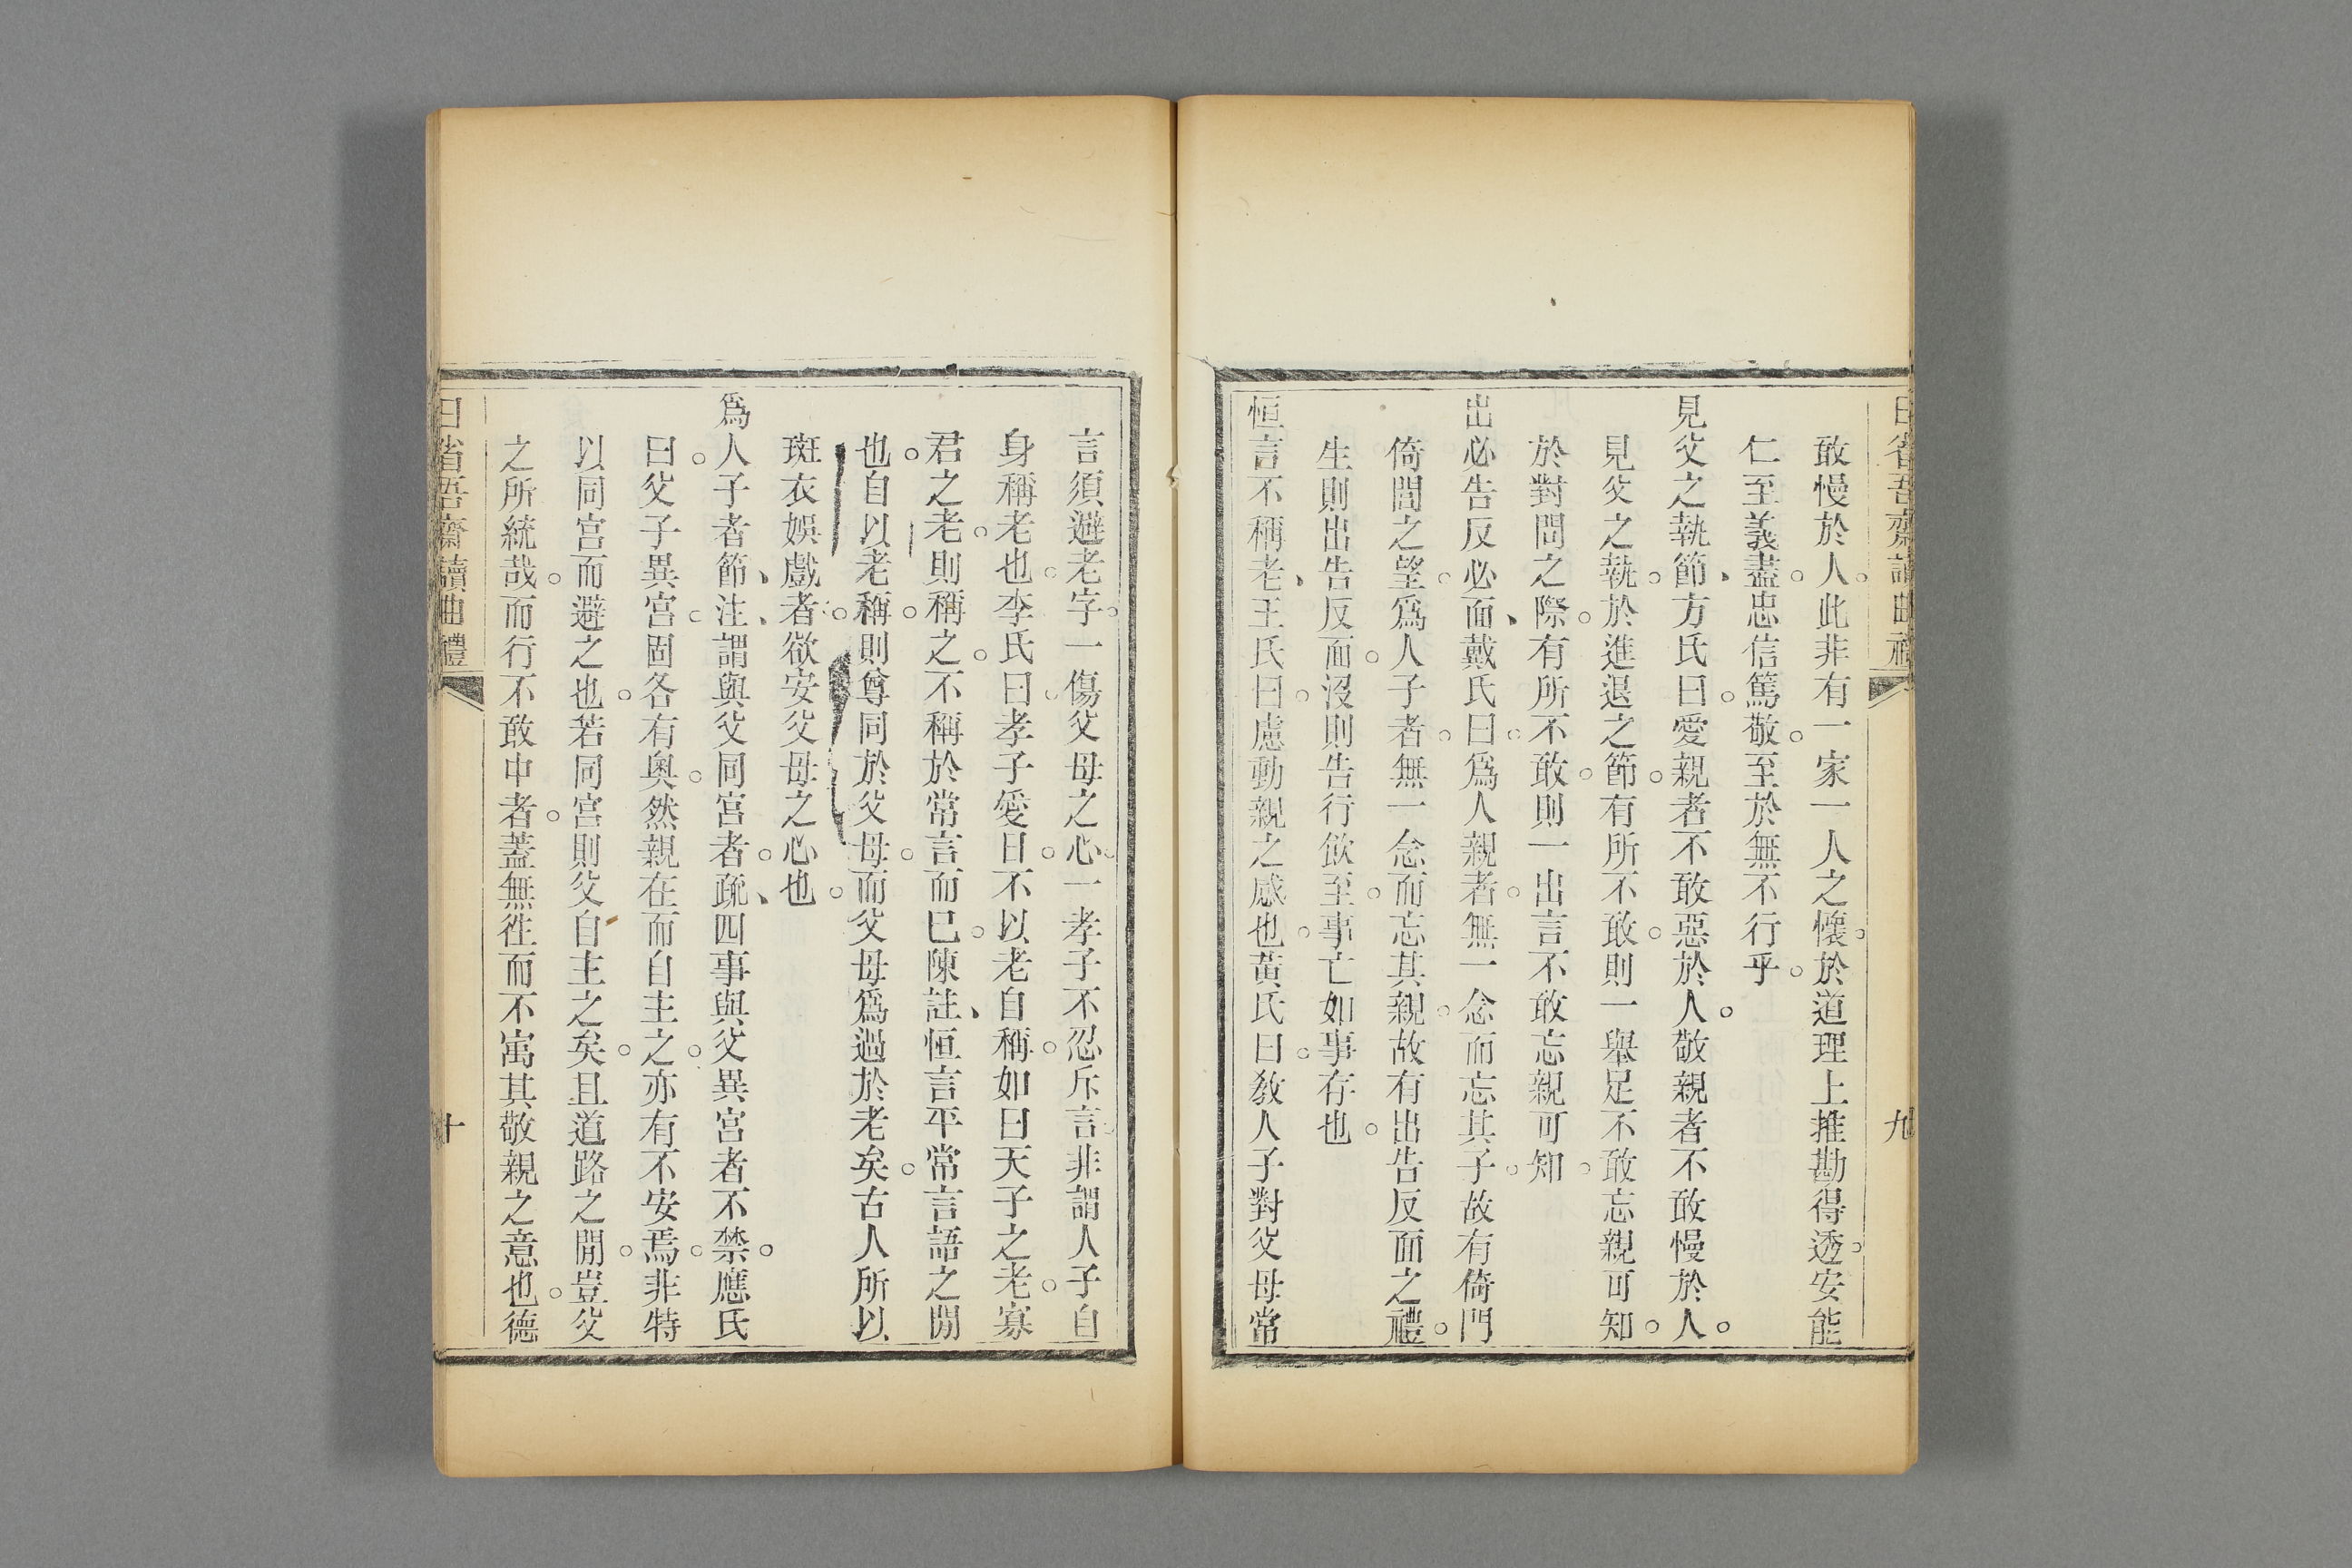 日省吾齋讀曲禮
九
敢慢於人。此非有一家一人之懷。於道理上推勘得透。安能
仁至義盡。忠信篤敬。至於無不行乎。
見父之執節、方氏曰。愛親者不敢惡於人。敬親者不敢慢於人。
見父之執。於進退之節。有所不敢。則一舉足不敢忘親可知。
於對問之際。有所不敢。則一出言不敢忘親可知。
出必告反必面、戴氏曰。爲人親者。無一念而忘其子。故有倚門
倚閭之望。爲人子者。無一念而忘其親。故有出告反面之禮。
生則出告反面。沒則告行飲至。事亡如事存也。
恒言不稱老、王氏曰。慮動親之感也。黃氏曰。敎人子對父母常
言須避老字。一傷父母之心。一孝子不忍斥言。非謂人子自
身稱老也。李氏曰。孝子愛日。不以老自稱。如曰天子之老。寡
君之老。則稱之。不稱於常言而已。陳註、恒言平常言語之閒
也。自以老稱。則尊同於父母。而父母爲過於老矣。古人所以
斑衣娛戲者。欲安父母之心也。
爲人子者節、注、謂與父同宮者。疏、四事與父異宮者不禁。應氏
曰。父子異宮。固各有奧。然親在而自主之。亦有不安焉。非特
以同宮而避之也。若同宮則父自主之矣。且道路之閒。豈父
之所統哉。而行不敢中者。蓋無徃而不寓其敬親之意也。德
日省吾齋讀曲禮
十